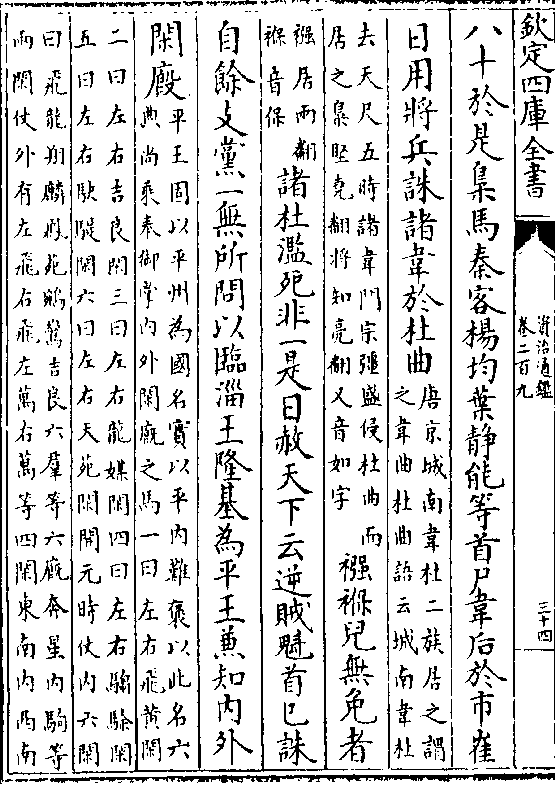 欽定四庫全書
資治通鑑
卷二百九
三十四
八十於是梟馬秦客楊均葉静能等首尸韋后於市崔
日用將兵誅諸韋於杜曲
唐京城南韋杜二族居之謂
之韋曲杜曲語云城南韋杜
去天尺五時諸韋門宗彊盛侵杜曲而
居之梟堅堯翻將知亮翻又音如字
襁褓兒無免者
襁居兩翻
褓音保
諸杜濫死非一是日赦天下云逆賊魁首已誅
自餘支黨一無所問以臨淄王隆基為平王兼知内外
閑廏
平王固以平州為國名實以平内難褒以此名六
典尚乘奉御掌内外閑廐之馬一曰左右飛黄閑
二曰左右吉良閑三曰左右龍媒閑四曰左右騊駼閑
五曰左右駃騠閑六曰左右天苑閑開元時仗内六閑
曰飛龍翔麟鳳苑鵷鸞吉良六羣等六廐奔星内駒等
兩閑仗外有左飛右飛左萬右萬等四閑東南内西南